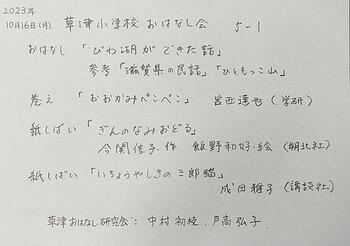 2023年
10月16日(月) 草津小学校 おはなし会 5-1
おはなし「びわ湖ができた話」
参考「滋賀県の民話」「ひともっこ山」
巻え「おおかみペこペこ」 宮西達也(学研)
紙しばい「ぎんのなみおどる」
今関信子・作 飯野和好・絵 (朝北社)
紙しばい「いちょうやしきの三郎猫」
成田雅子(講談社)
草津おはなし研究会: 中村初枝, 戸高弘子